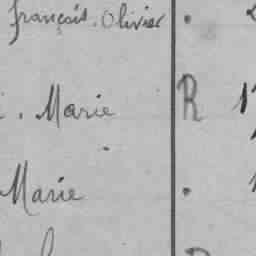 françois. Olivier
. Marie R
Marie